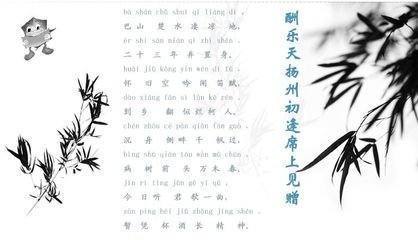 酬乐天扬州初逢席上见赠
bā shān chǔ shuǐ qī liáng dì ,
巴山 楚水凄凉地,
èr shí sān nián qì zhì shēn .
二十三年弃置身.
huái jiù kōng yín wén dí fù ,
怀旧空 吟闻笛赋,
dào xiāng fān sì làn kē rén .
到乡 翻似烂柯人.
chén zhōu cè pàn qiān fān guò ,
沉舟 侧畔千 帆过,
bìng shù qián tóu wàn mù chūn .
病树前 头万木春.
jīn rì tīng jūn gē yì qǔ ,
今日听 君歌一曲,
zàn píng bēi jiǔ zhǎng jīng shén .
暂凭 杯酒长 精神.